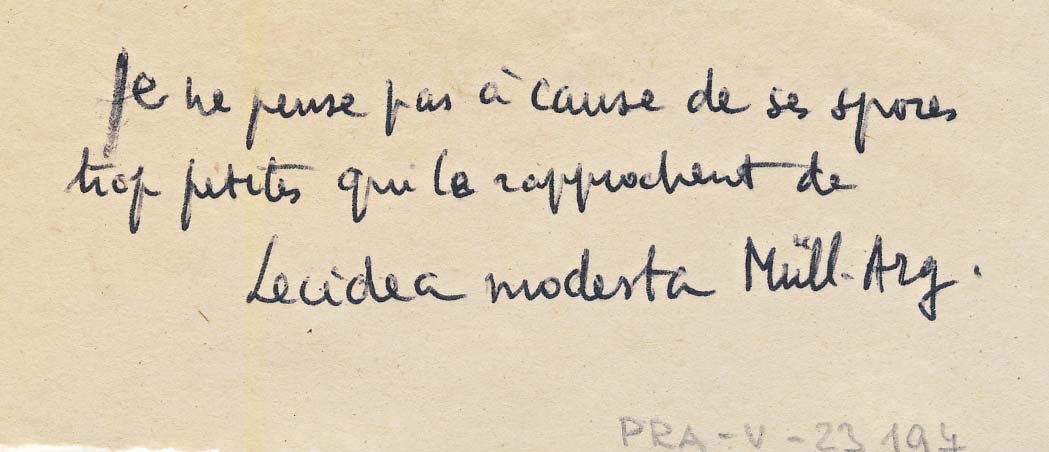 Je ne pense pas à cause de ses spores
trop petites qui le rapprochent de
Lecidea modesta Müll. Arg.
PRA-V-23194